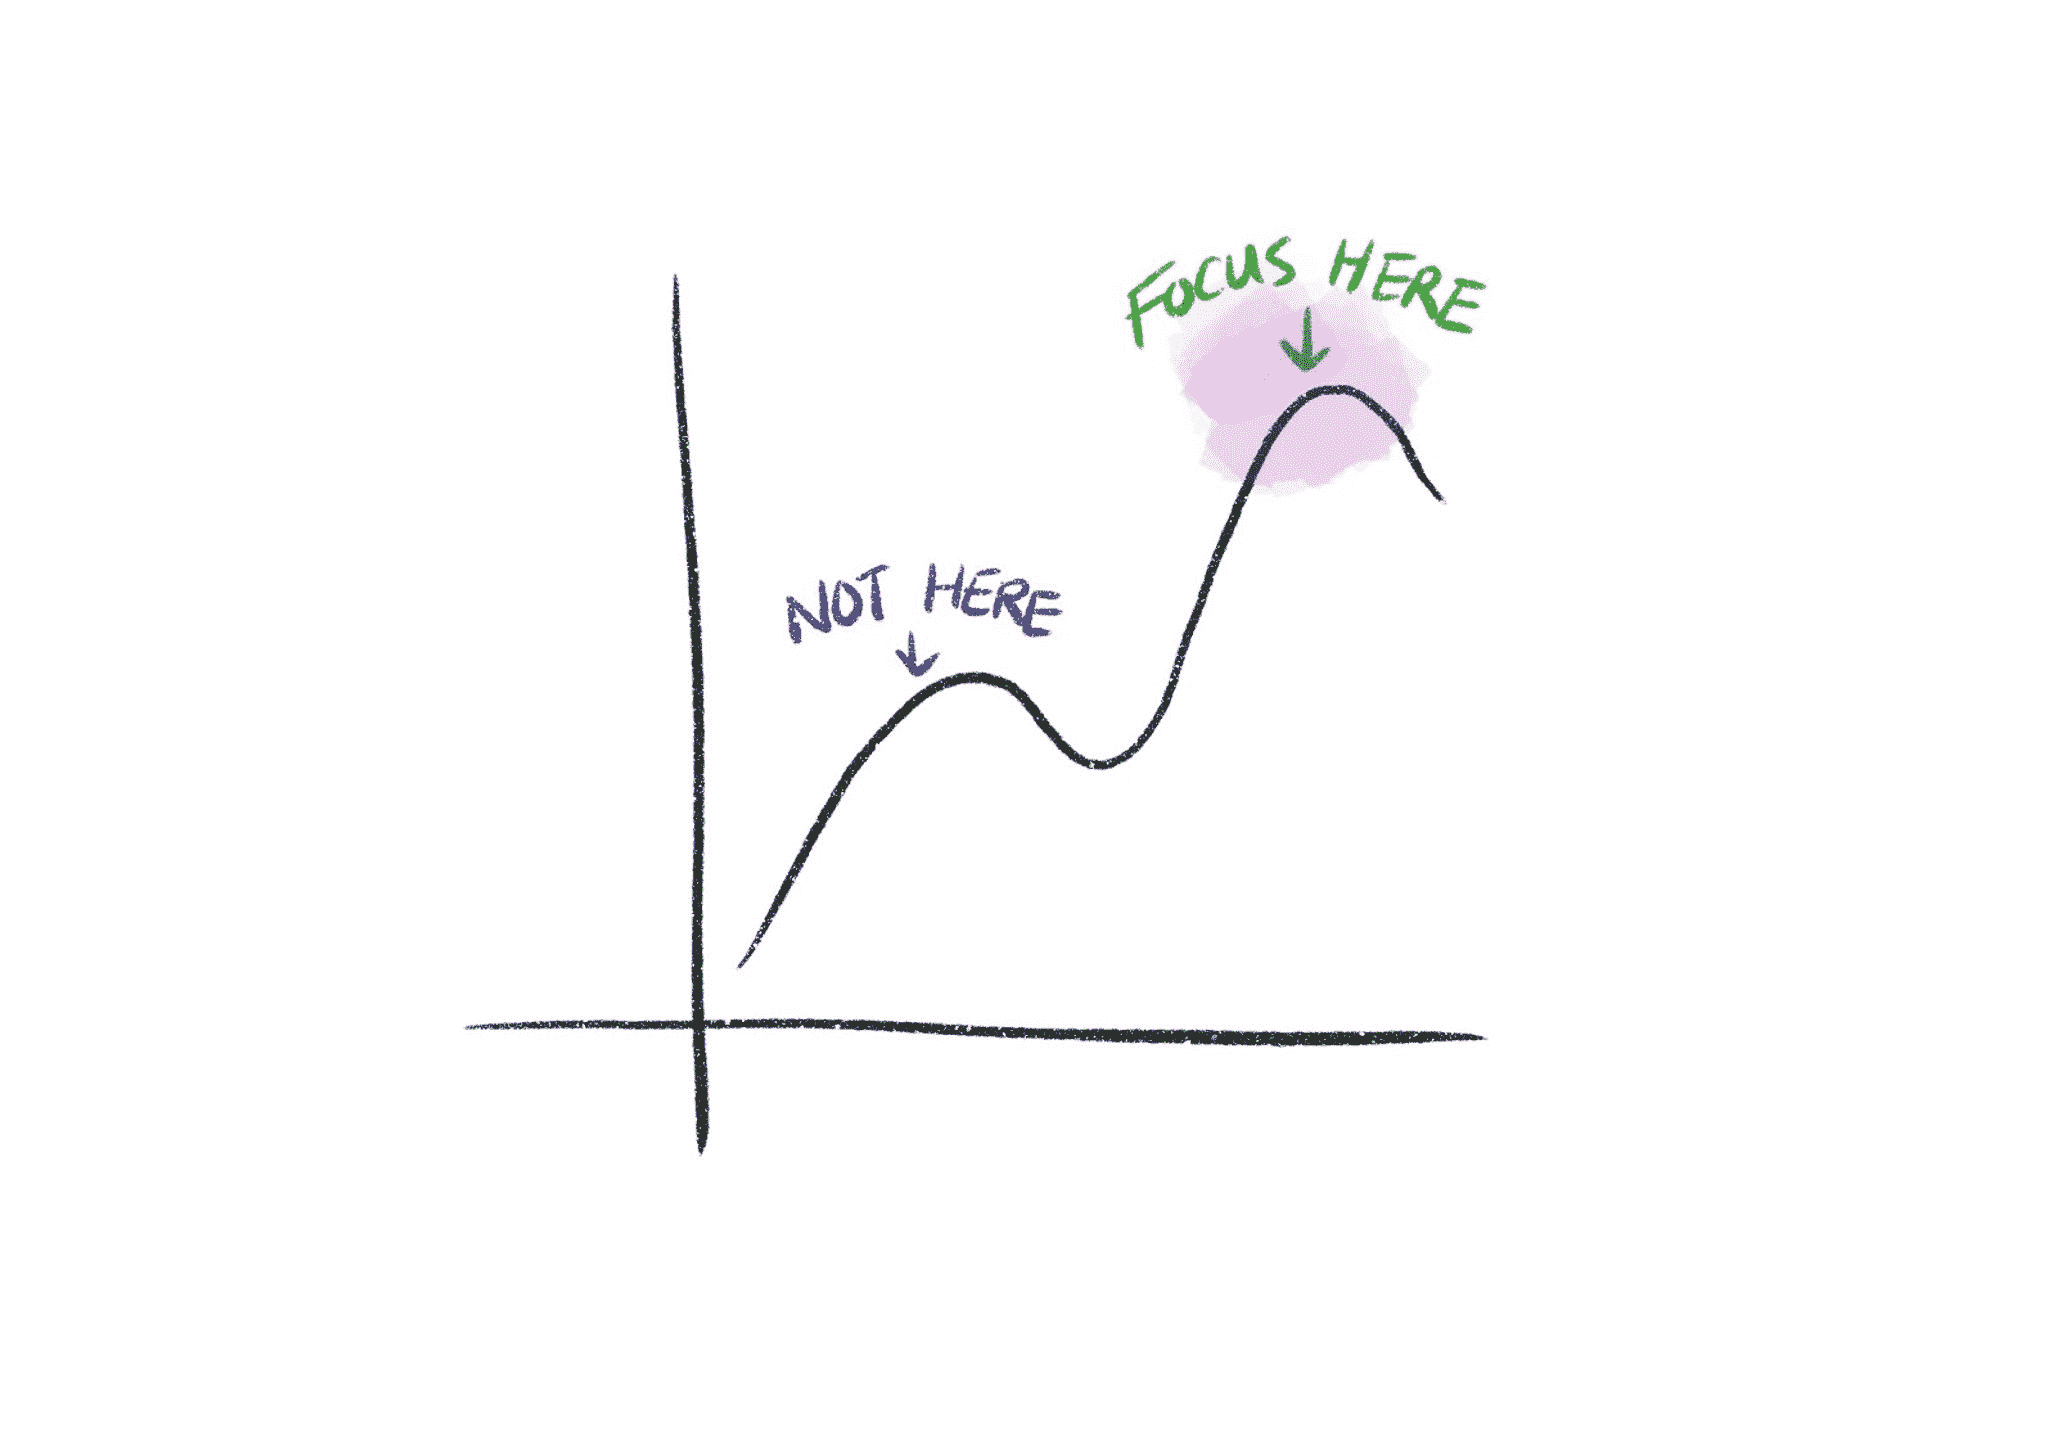 FOCUS HERE
NOT HERE